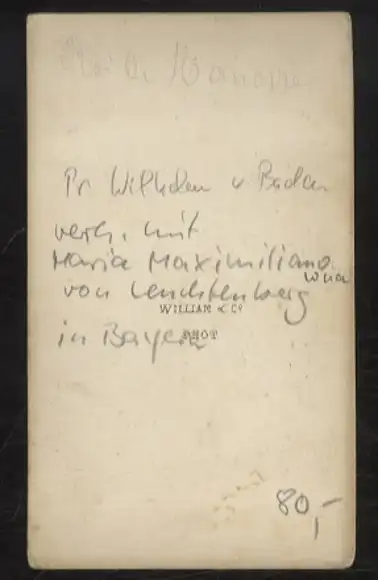 Pr Wilhelm v Baden
verh. mit
Maria Maximilianowna
von Leuchtenberg
WILLIAM & Cº
in Bayern
PHOT
80,-